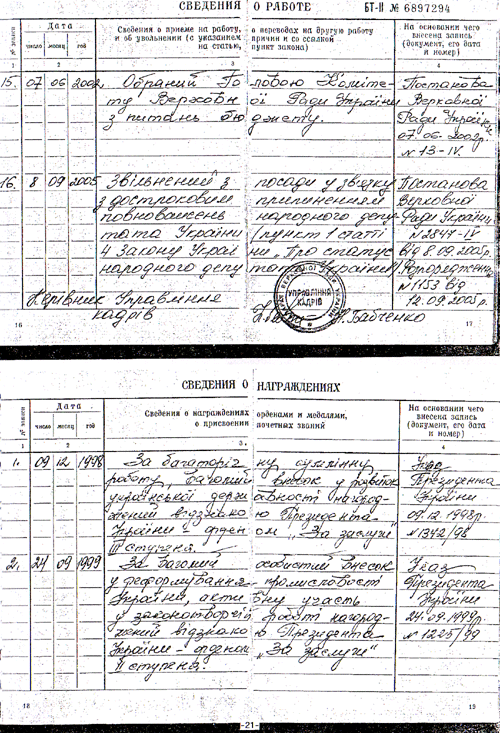 СВЕДЕНИЯ О РАБОТЕ БТ-II № 6897294
№ записи
Дата
Сведения о приеме на работу, о переводах на другую работу
и об увольнении (с указанием причин и со ссылкой
на статью, пункт закона)
На основании чего
внесена запись
(документ, его дата
и номер)
число месяц год
1 2 3 4
15. 07 06 2002 Обраний Головою Коміте- Постанова
ту Верховної Ради України Верховної
з питань бюджету. Ради України
07.06.2002р.
№ 13-IV.
16. 8 09 2005 Звільнений з посади у зв'язку Постанова
з достроковим припиненням Верховної
повноважень народного депу- Ради України
тата України /пункт 1 статті №2847-IV
4 Закону України „Про статус від 8.09.2005р.
народного депутата України/ Розпорядження
Керівник Управління №1153 від
кадрів Бабченко 12.09.2005р.
УПРАВЛІННЯ
КАДРІВ
16 17
СВЕДЕНИЯ О НАГРАЖДЕНИЯХ
№ записи
Дата
Сведения о награждениях орденами и медалями,
о присвоении почетных званий
На основании чего
внесена запись
(документ, его дата
и номер)
число месяц год
1 2 3 4
1. 09 12 1998 За багаторічну сумлінну Указ
роботу, вагомий внесок у розвиток Президента
української державності нагород- України
жений відзнакою Президента 09.12.1998р.
України - орденом „За заслуги" №1342/98
III ступеня.
2. 24 09 1999 За вагомий особистий внесок Указ
у реформування промисловості Президента
України, активну участь України
у законотворчій роботі нагород- 24.09.1999р.
жений відзнакою Президента №1225/99
України - орденом „За заслуги"
II ступеня.
18 19
-21-